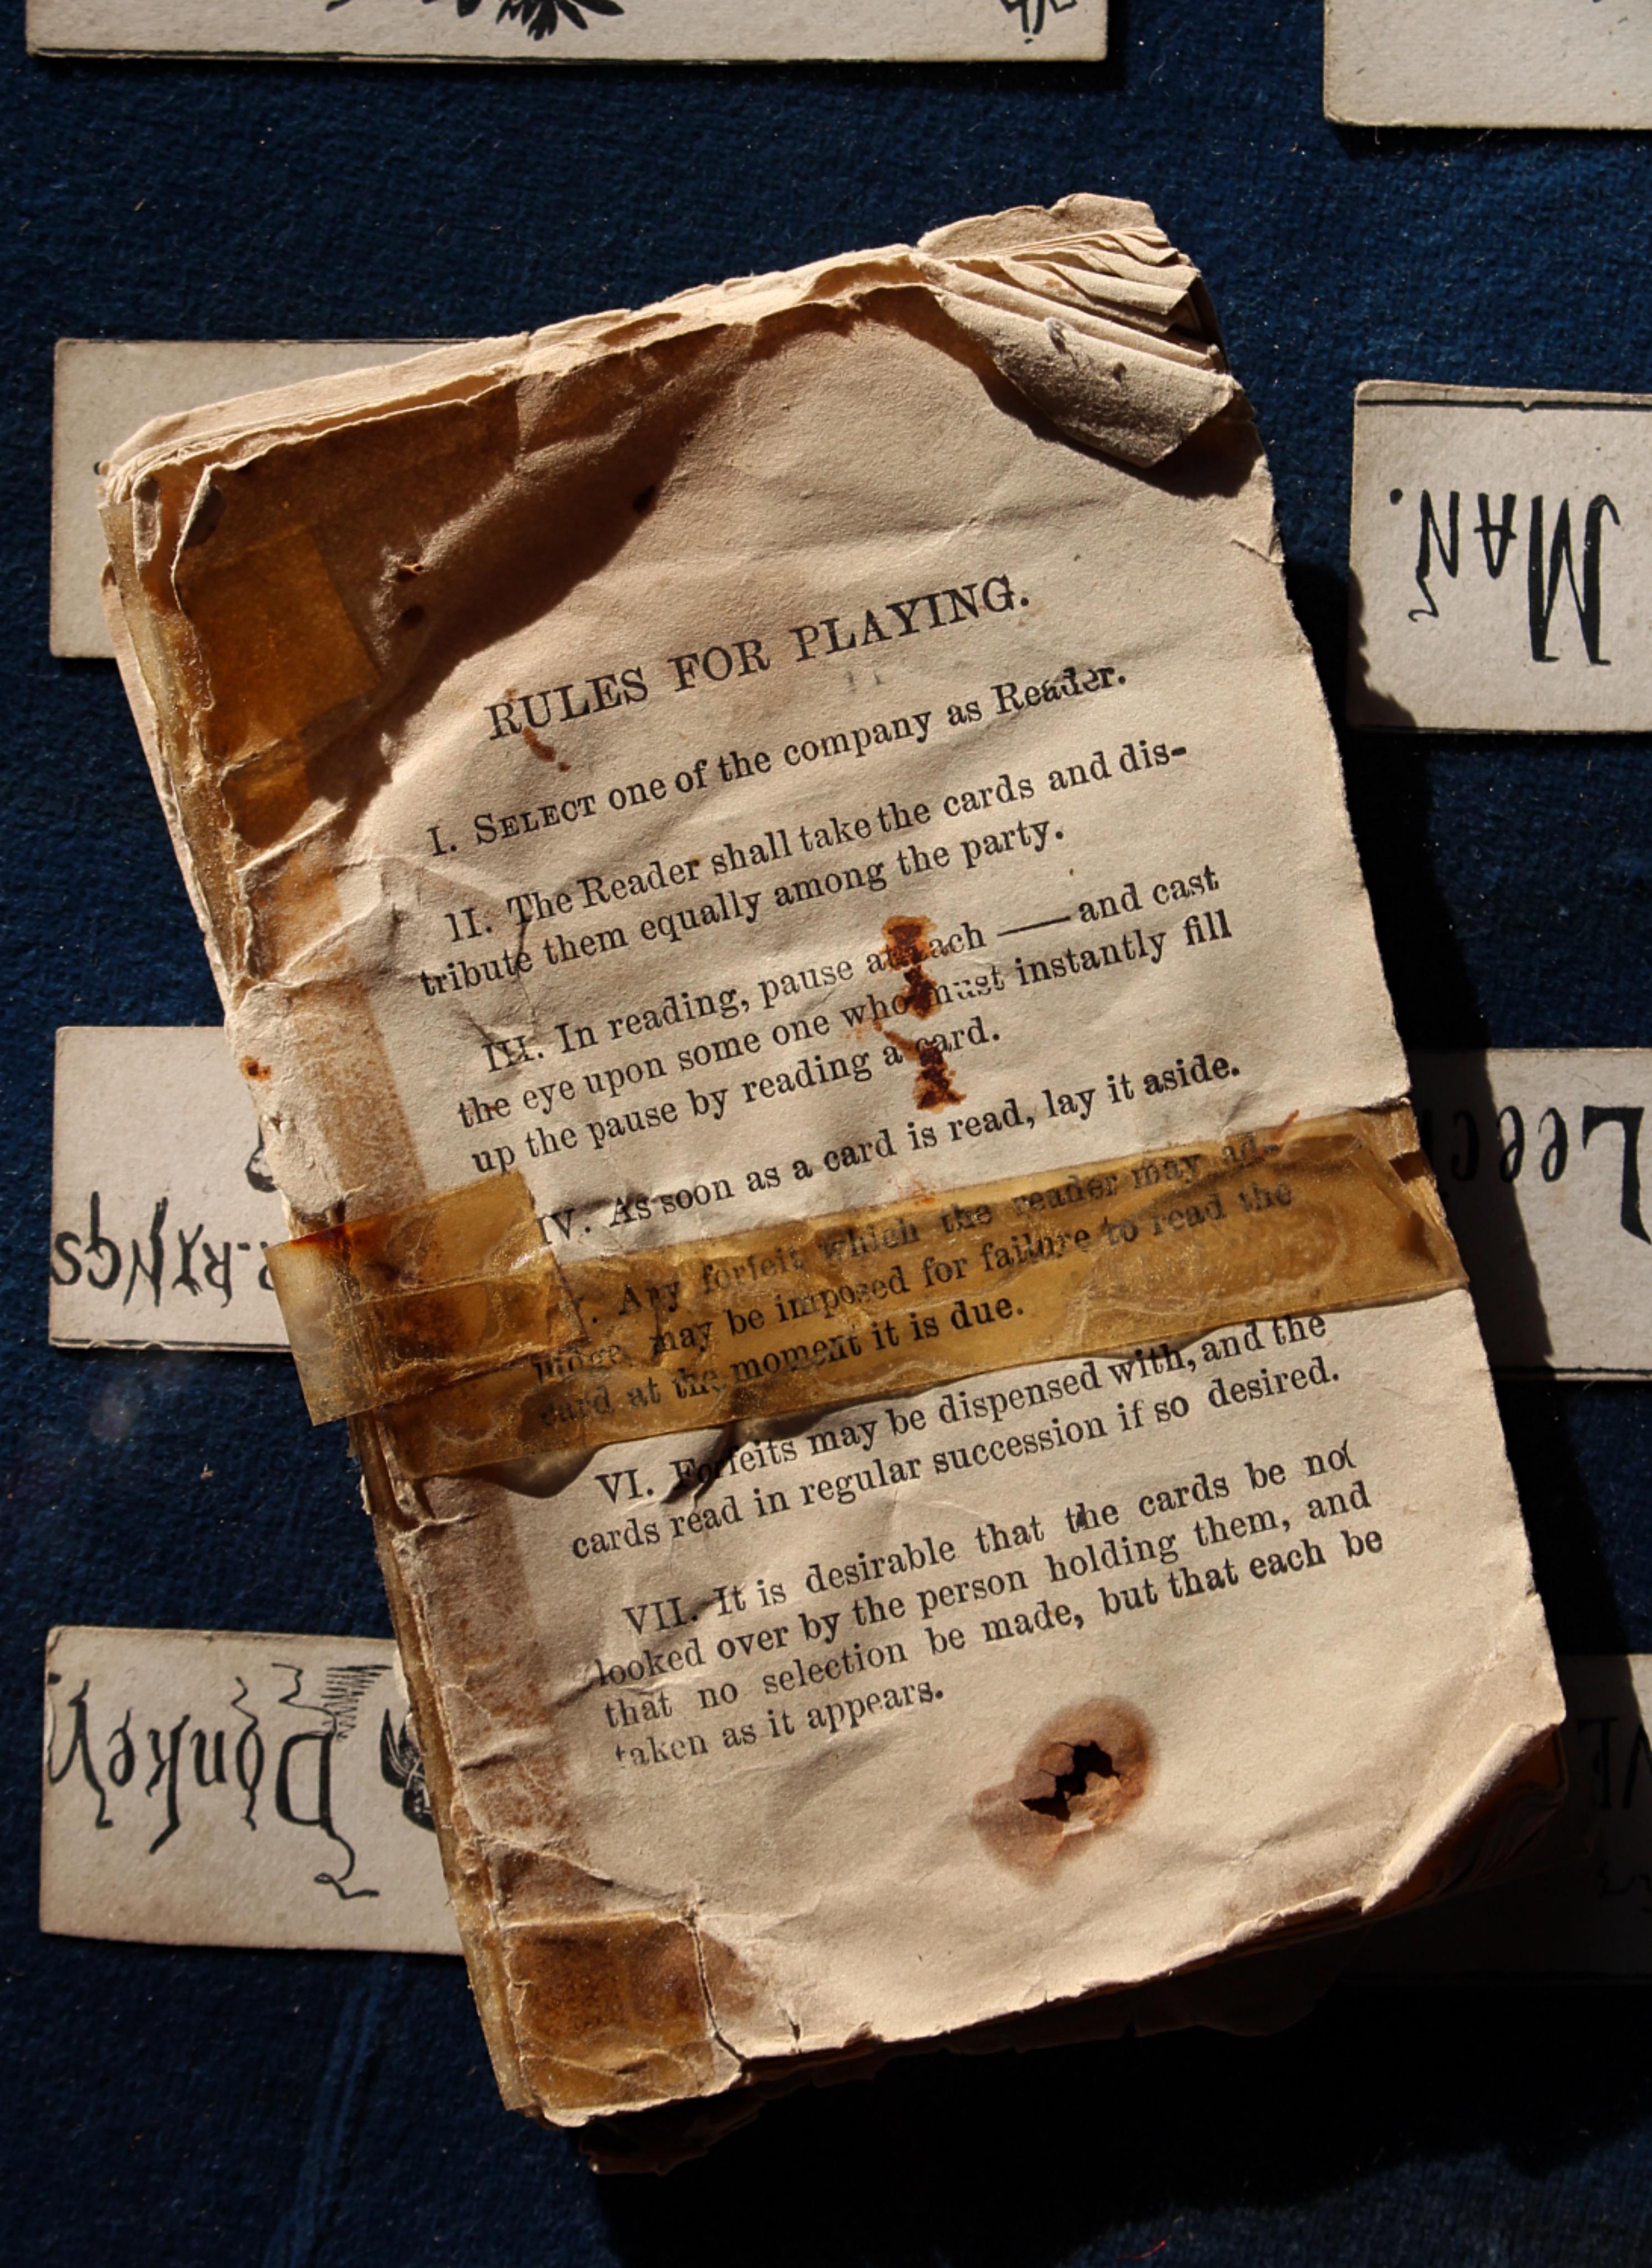 RULES FOR PLAYING.
I. SELECT one of the company as Reader.
II. The Reader shall take the cards and dis-
tribute them equally among the party.
III. In reading, pause at each — and cast
the eye upon some one who must instantly fill
up the pause by reading a card.
IV. As soon as a card is read, lay it aside.
V. Any forfeit which the reader may ad-
judge, may be imposed for failure to read the
card at the moment it is due.
VI. Forfeits may be dispensed with, and the
cards read in regular succession if so desired.
VII. It is desirable that the cards be not
looked over by the person holding them, and
that no selection be made, but that each be
taken as it appears.
MAN.
Leech
R-RINGS
DonkeY
VE